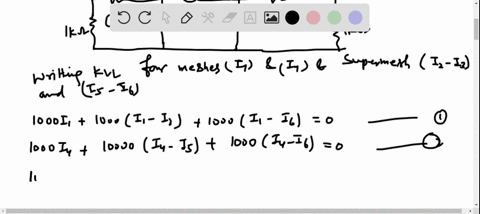 1kΩ
writing KVL for meshes (I₁) & (I₄) & Supermesh (I₂-I₃)
and (I₅-I₆)
1000I₁ + 1000 (I₁-I₂) + 1000 (I₁-I₆) = 0 —— ①
1000I₄ + 10000 (I₄-I₅) + 1000 (I₄-I₆) = 0 —— ②